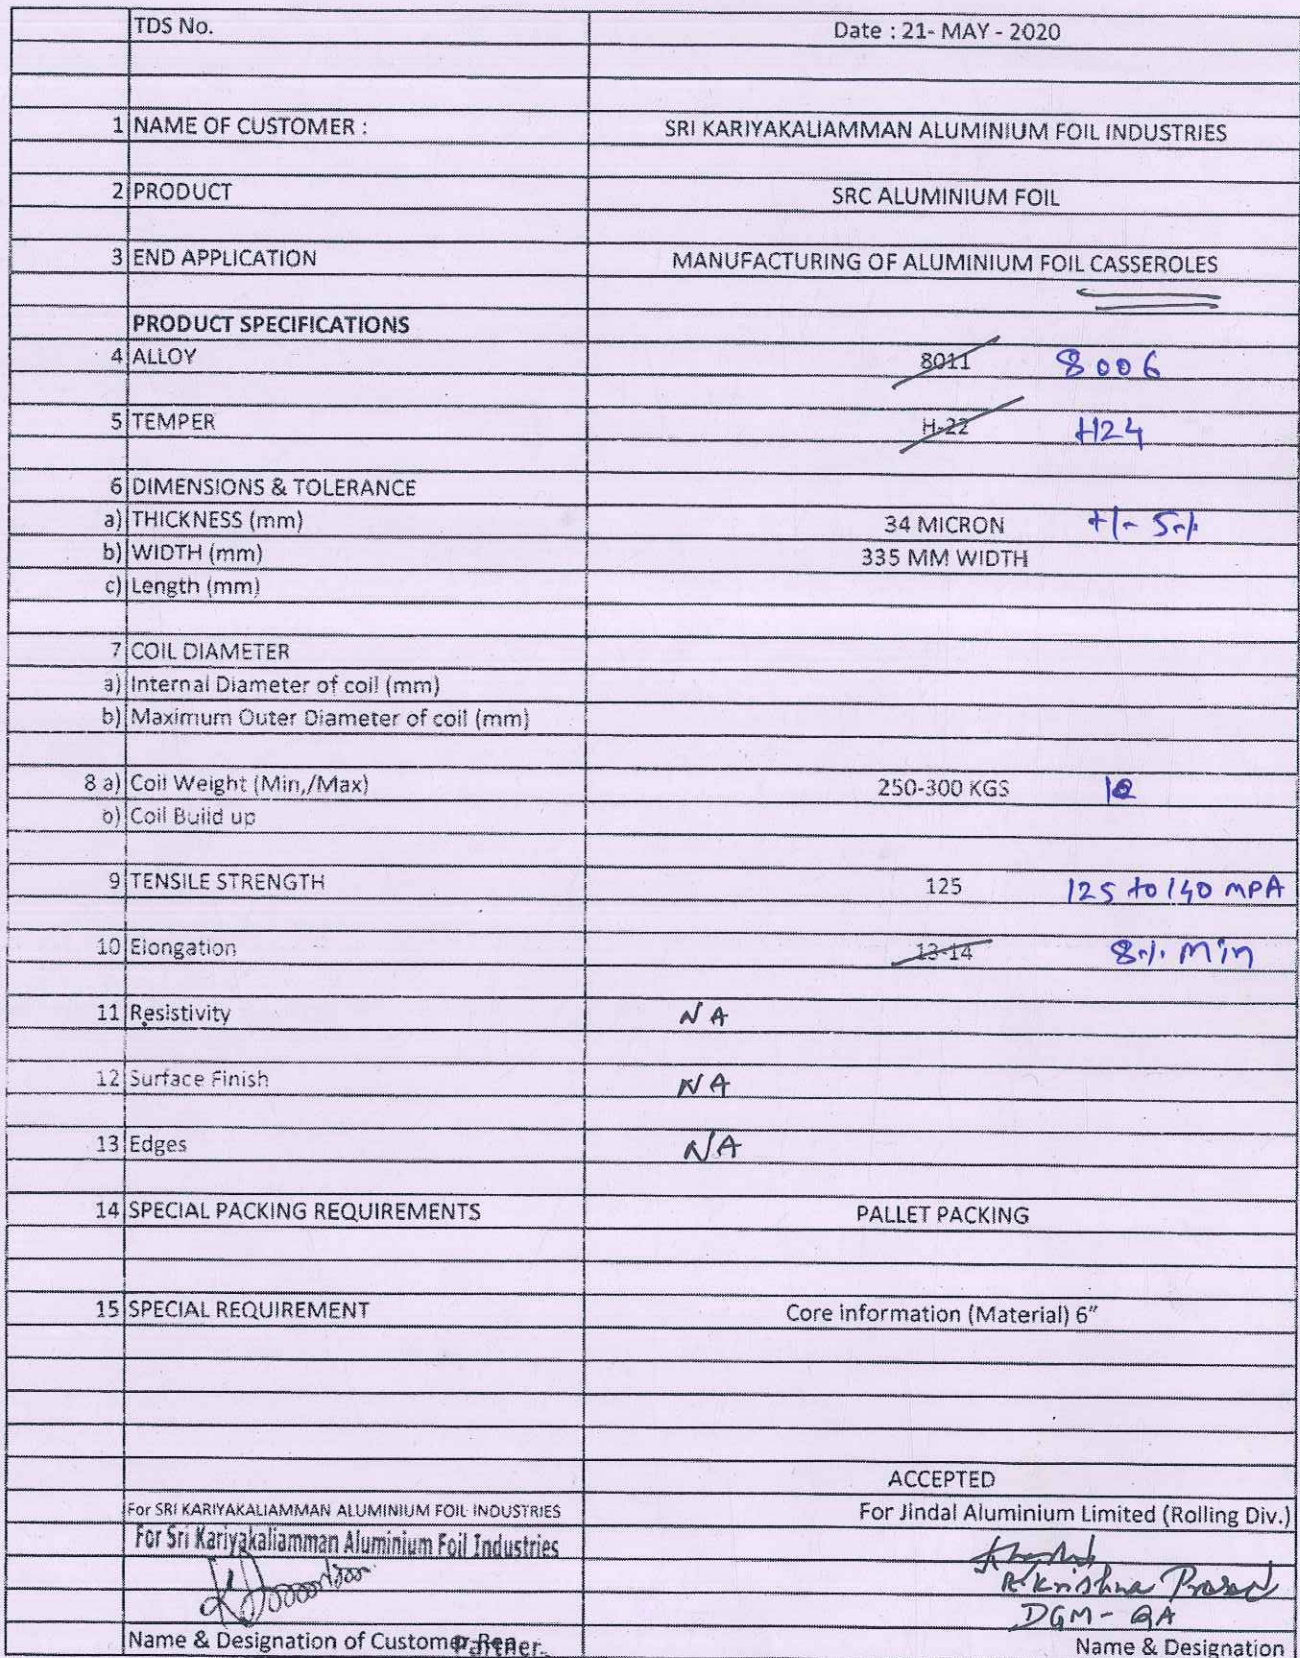 TDS No. Date : 21- MAY - 2020
1 NAME OF CUSTOMER : SRI KARIYAKALIAMMAN ALUMINIUM FOIL INDUSTRIES
2 PRODUCT SRC ALUMINIUM FOIL
3 END APPLICATION MANUFACTURING OF ALUMINIUM FOIL CASSEROLES
PRODUCT SPECIFICATIONS
4 ALLOY 8011 8006
5 TEMPER H-22 H24
6 DIMENSIONS & TOLERANCE
a) THICKNESS (mm) 34 MICRON +/- 5%
b) WIDTH (mm) 335 MM WIDTH
c) Length (mm)
7 COIL DIAMETER
a) Internal Diameter of coil (mm)
b) Maximum Outer Diameter of coil (mm)
8 a) Coil Weight (Min,/Max) 250-300 KGS
b) Coil Build up
9 TENSILE STRENGTH 125 125 to 140 MPA
10 Elongation 13-14 8% Min
11 Resistivity NA
12 Surface Finish NA
13 Edges NA
14 SPECIAL PACKING REQUIREMENTS PALLET PACKING
15 SPECIAL REQUIREMENT Core information (Material) 6"
ACCEPTED
For SRI KARIYAKALIAMMAN ALUMINIUM FOIL INDUSTRIES For Jindal Aluminium Limited (Rolling Div.)
For Sri Kariyakaliamman Aluminium Foil Industries
Krishna Prasad
DGM - QA
Name & Designation of Customer Rep Partner. Name & Designation